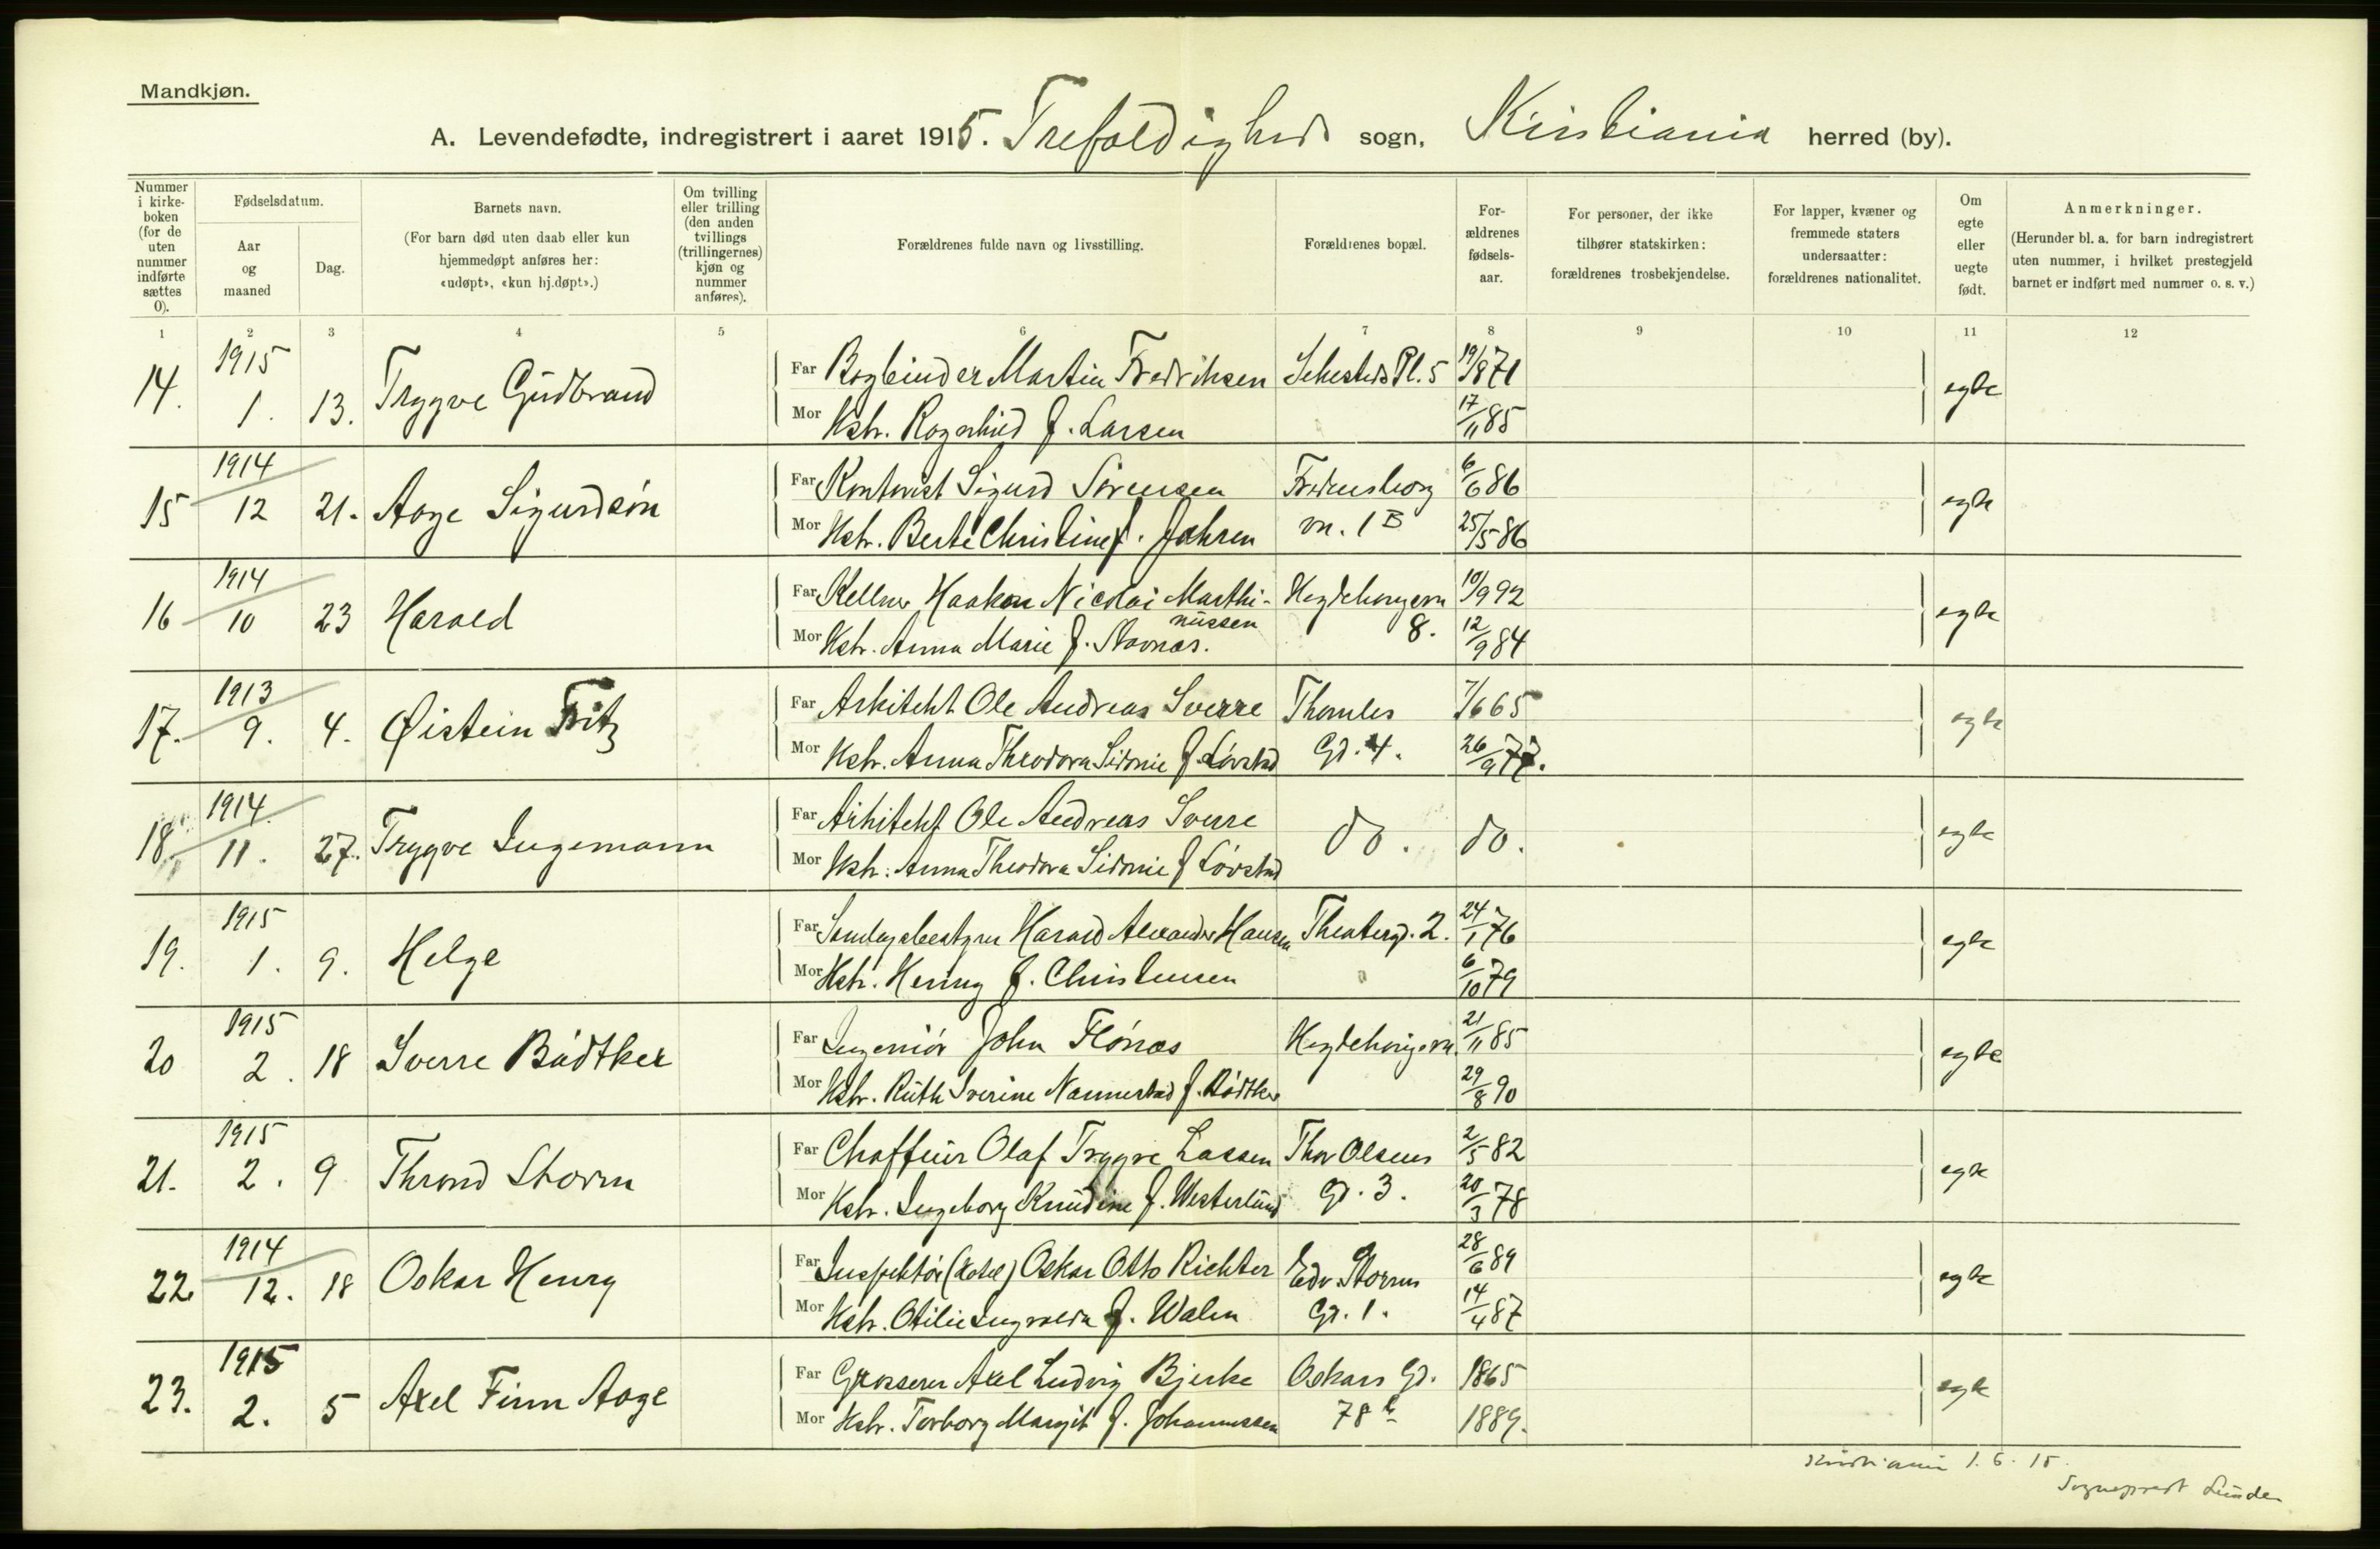 Mandkjøn.
A. Levendefødte, indregistrert i aaret 1915. Trefoldigheds sogn, Kristiania herred (by).
Nummer i kirke-boken (for de uten nummer indførte sættes 0).
Fødselsdatum.
Aar og maaned
Dag.
Barnets navn.
(For barn død uten daab eller kun hjemmedøpt anføres her: «udøpt», «kun hj.døpt».)
Om tvilling eller trilling (den anden tvillings (trillingernes) kjøn og nummer anføres).
Forældrenes fulde navn og livsstilling.
Forældrenes bopæl.
For-ældrenes fødsels-aar.
For personer, der ikke tilhører statskirken: forældrenes trosbekjendelse.
For lapper, kvæner og fremmede staters undersaatter: forældrenes nationalitet.
Om egte eller uegte født.
Anmerkninger.
(Herunder bl. a. for barn indregistrert uten nummer, i hvilket prestegjeld barnet er indført med nummer o. s. v.)
1 2 3 4 5 6 7 8 9 10 11 12
14. 1915 1. 13. Trygve Gudbrand
Far Bogbinder Martin Fredriksen Sehesteds Pl. 5 19/8 71 egte
Mor Hstr. Ragnhild f. Larsen 17/11 85
15 1914 12 21. Aage Sigurdsøn
Far Kontorist Sigurd Sørensen Fredensborg 6/6 86 egte
Mor Hstr. Berte Christine f. Jahren vn. 1 B 25/5 86
16 1914 10 23 Harald
Far Kellner Haakon Nicolai Marthi- Hegdehaugsvn 10/9 92 egte
nussen 8.
Mor Hstr. Anna Marie f. Stavnæs. 12/9 84
17. 1913 9. 4. Øistein Fritz
Far Arkitekt Ole Andreas Sverre Thomles 7/6 65 egte
Mor Hstr. Anna Theodora Sidonie f. Løvstad Gd. 4. 26/9 77.
18. 1914 11. 27. Trygve Ingemann
Far Arkitekt Ole Andreas Sverre do. do. egte
Mor Hstr. Anna Theodora Sidonie f Løvstad
19. 1915 1. 9. Helge
Far Harald Alexander Hansen Theatergd. 2. 24/1 76 egte
Mor Hstr. Henny f. Christensen 6/10 79
20 1915 2. 18 Sverre Bødtker
Far Ingeniør John Flönæs Hegdehaugsvn. 21/11 85 egte
Mor Hstr. Ruth Severine Nannestad f. Bødtker 29/8 90
21. 1915 2. 9 Thrond Storm
Far Chaffeur Olaf Trygve Lassen Thor Olsens 2/5 82 egte
Mor Hstr. Ingeborg Knudine f. Westerlund Gd. 3. 20/3 78
22 1914 12. 18 Oskar Henry
Far Inspektør (Hotel) Oskar Otto Richter Edv. Storms 28/6 89 egte
Mor Hstr. Otilie Ingvalda f. Walen Gd. 1. 14/4 87
23. 1915 2. 5 Axel Finn Aage
Far Grosserer Axel Ludvig Bjerke Oskars Gd. 1865 egte
Mor Hstr. Torborg Margit f. Johannessen 78 b 1889.
Kristiania 1. 6. 15.
Sogneprest Lunde